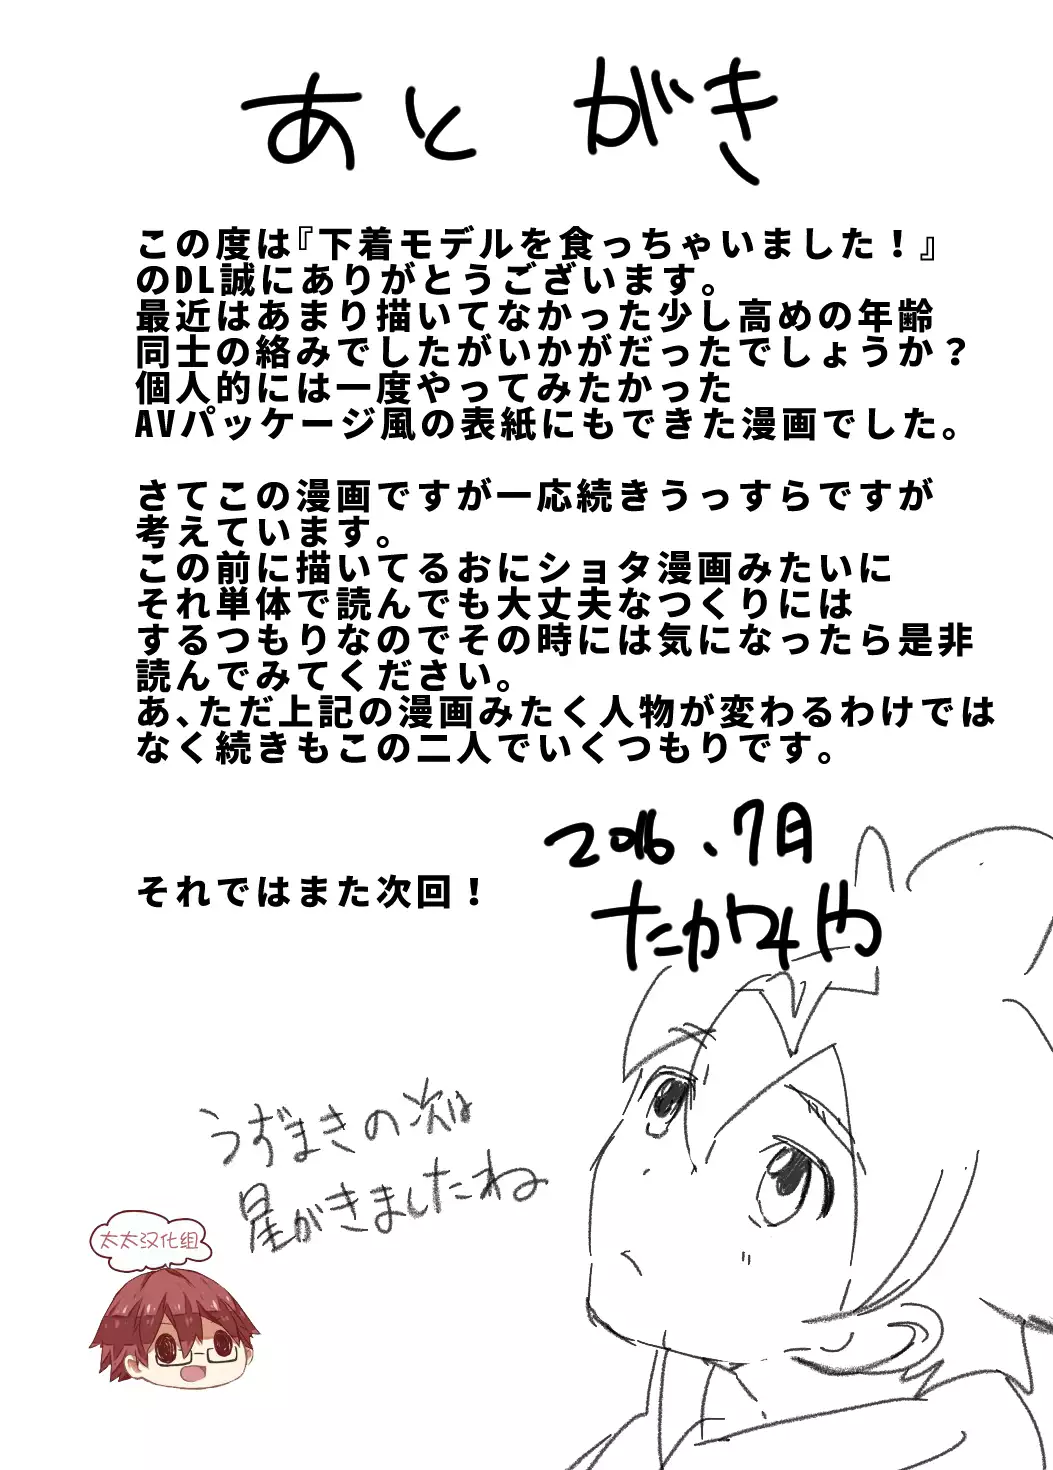 あとがき
この度は『下着モデルを食っちゃいました！』
のDL誠にありがとうございます。
最近はあまり描いてなかった少し高めの年齢
同士の絡みでしたがいかがだったでしょうか？
個人的には一度やってみたかった
AVパッケージ風の表紙にもできた漫画でした。
さてこの漫画ですが一応続きうっすらですが
考えています。
この前に描いてるおにショタ漫画みたいに
それ単体で読んでも大丈夫なつくりには
するつもりなのでその時には気になったら是非
読んでみてください。
あ、ただ上記の漫画みたく人物が変わるわけでは
なく続きもこの二人でいくつもりです。
それではまた次回！
2016、7月
うずまきの次は
星がきましたね
太太汉化组